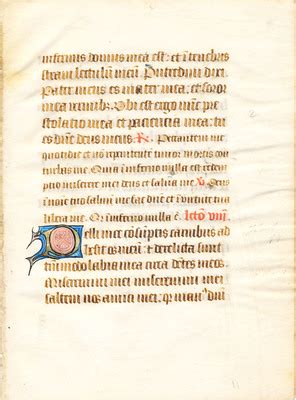 infernus domus mea est: et ī tenebris
stravi lectulū meū. Putredini dixi
Pater meus es mater mea: et soror
mea vermib. Ubi est ergo nūc pre
stolatio mea et paciencia mea: tu
es dñe deus meus. R. Peccantem me
quotidie et nō repenitentē timor mortis con
turbat me. Quia ī inferno nulla est redem
ptio miserere mei deus et salva me. V. Deus
ī noīe tuo salvū me fac et ī virtute tua
libera me. Qr inferno nulla ē. Lctō viii.
Pelli mee cōsūptis carnibus ad
hesit os meū: et derelicta sunt
tūmodo labia mea circa dētes meos.
Miseremini mei miseremini mei
saltem vos amici mei: qr man⁹ dñi